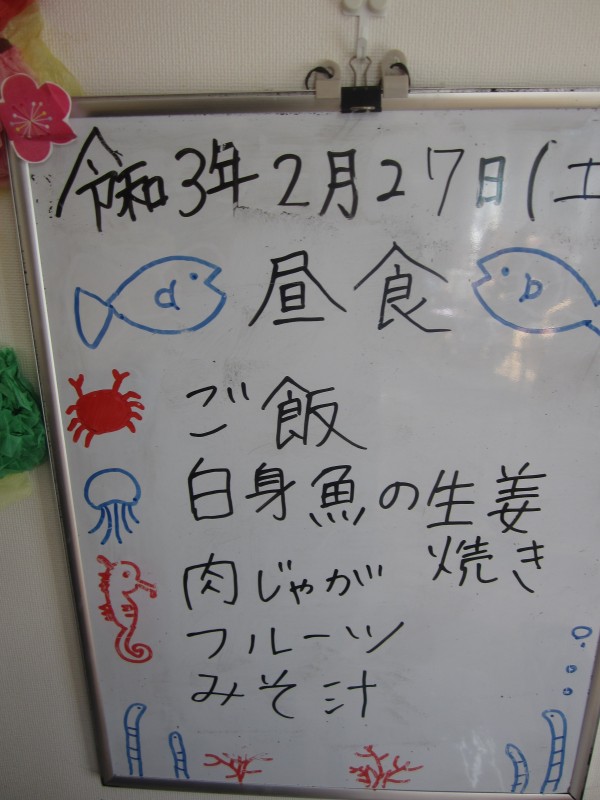 令和3年2月27日(土
昼食
ご飯
白身魚の生姜
焼き
肉じゃが
フルーツ
みそ汁